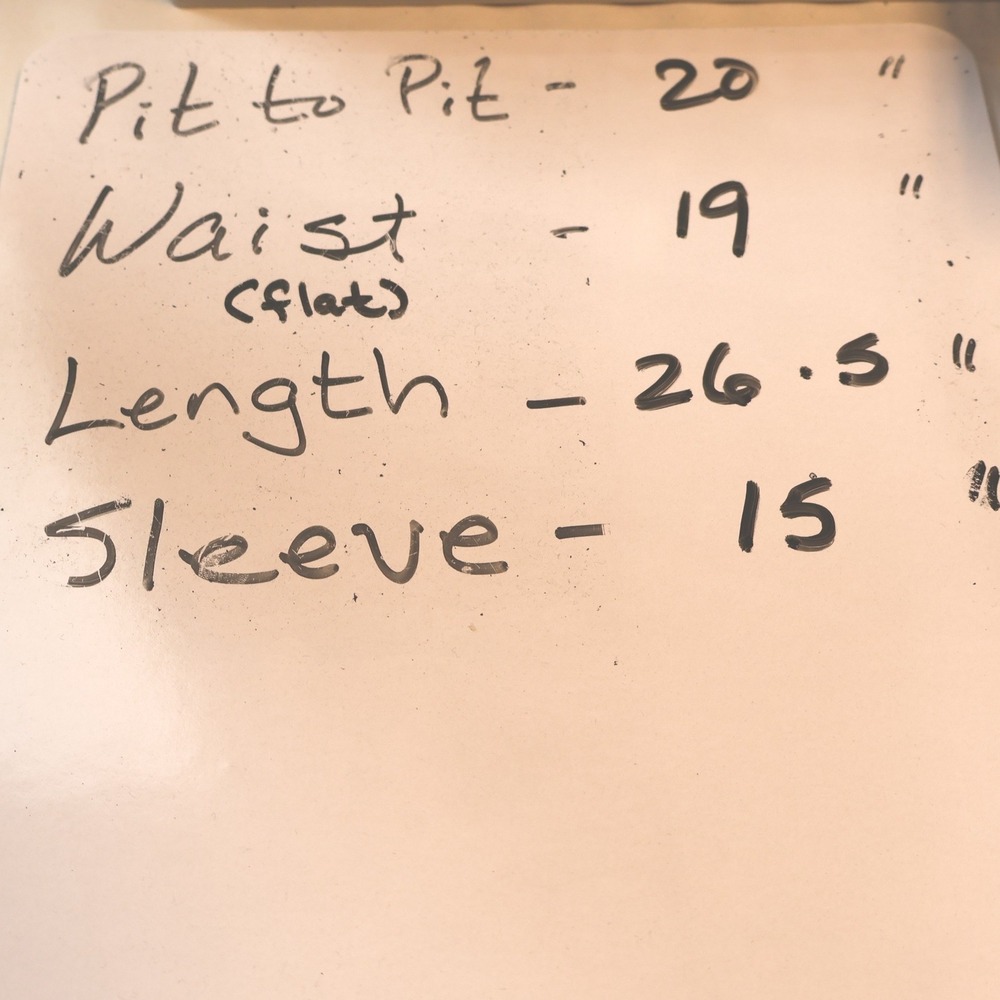 Pit to Pit - 20 "
Waist - 19 "
(flat)
Length - 26.5 "
Sleeve - 15 "